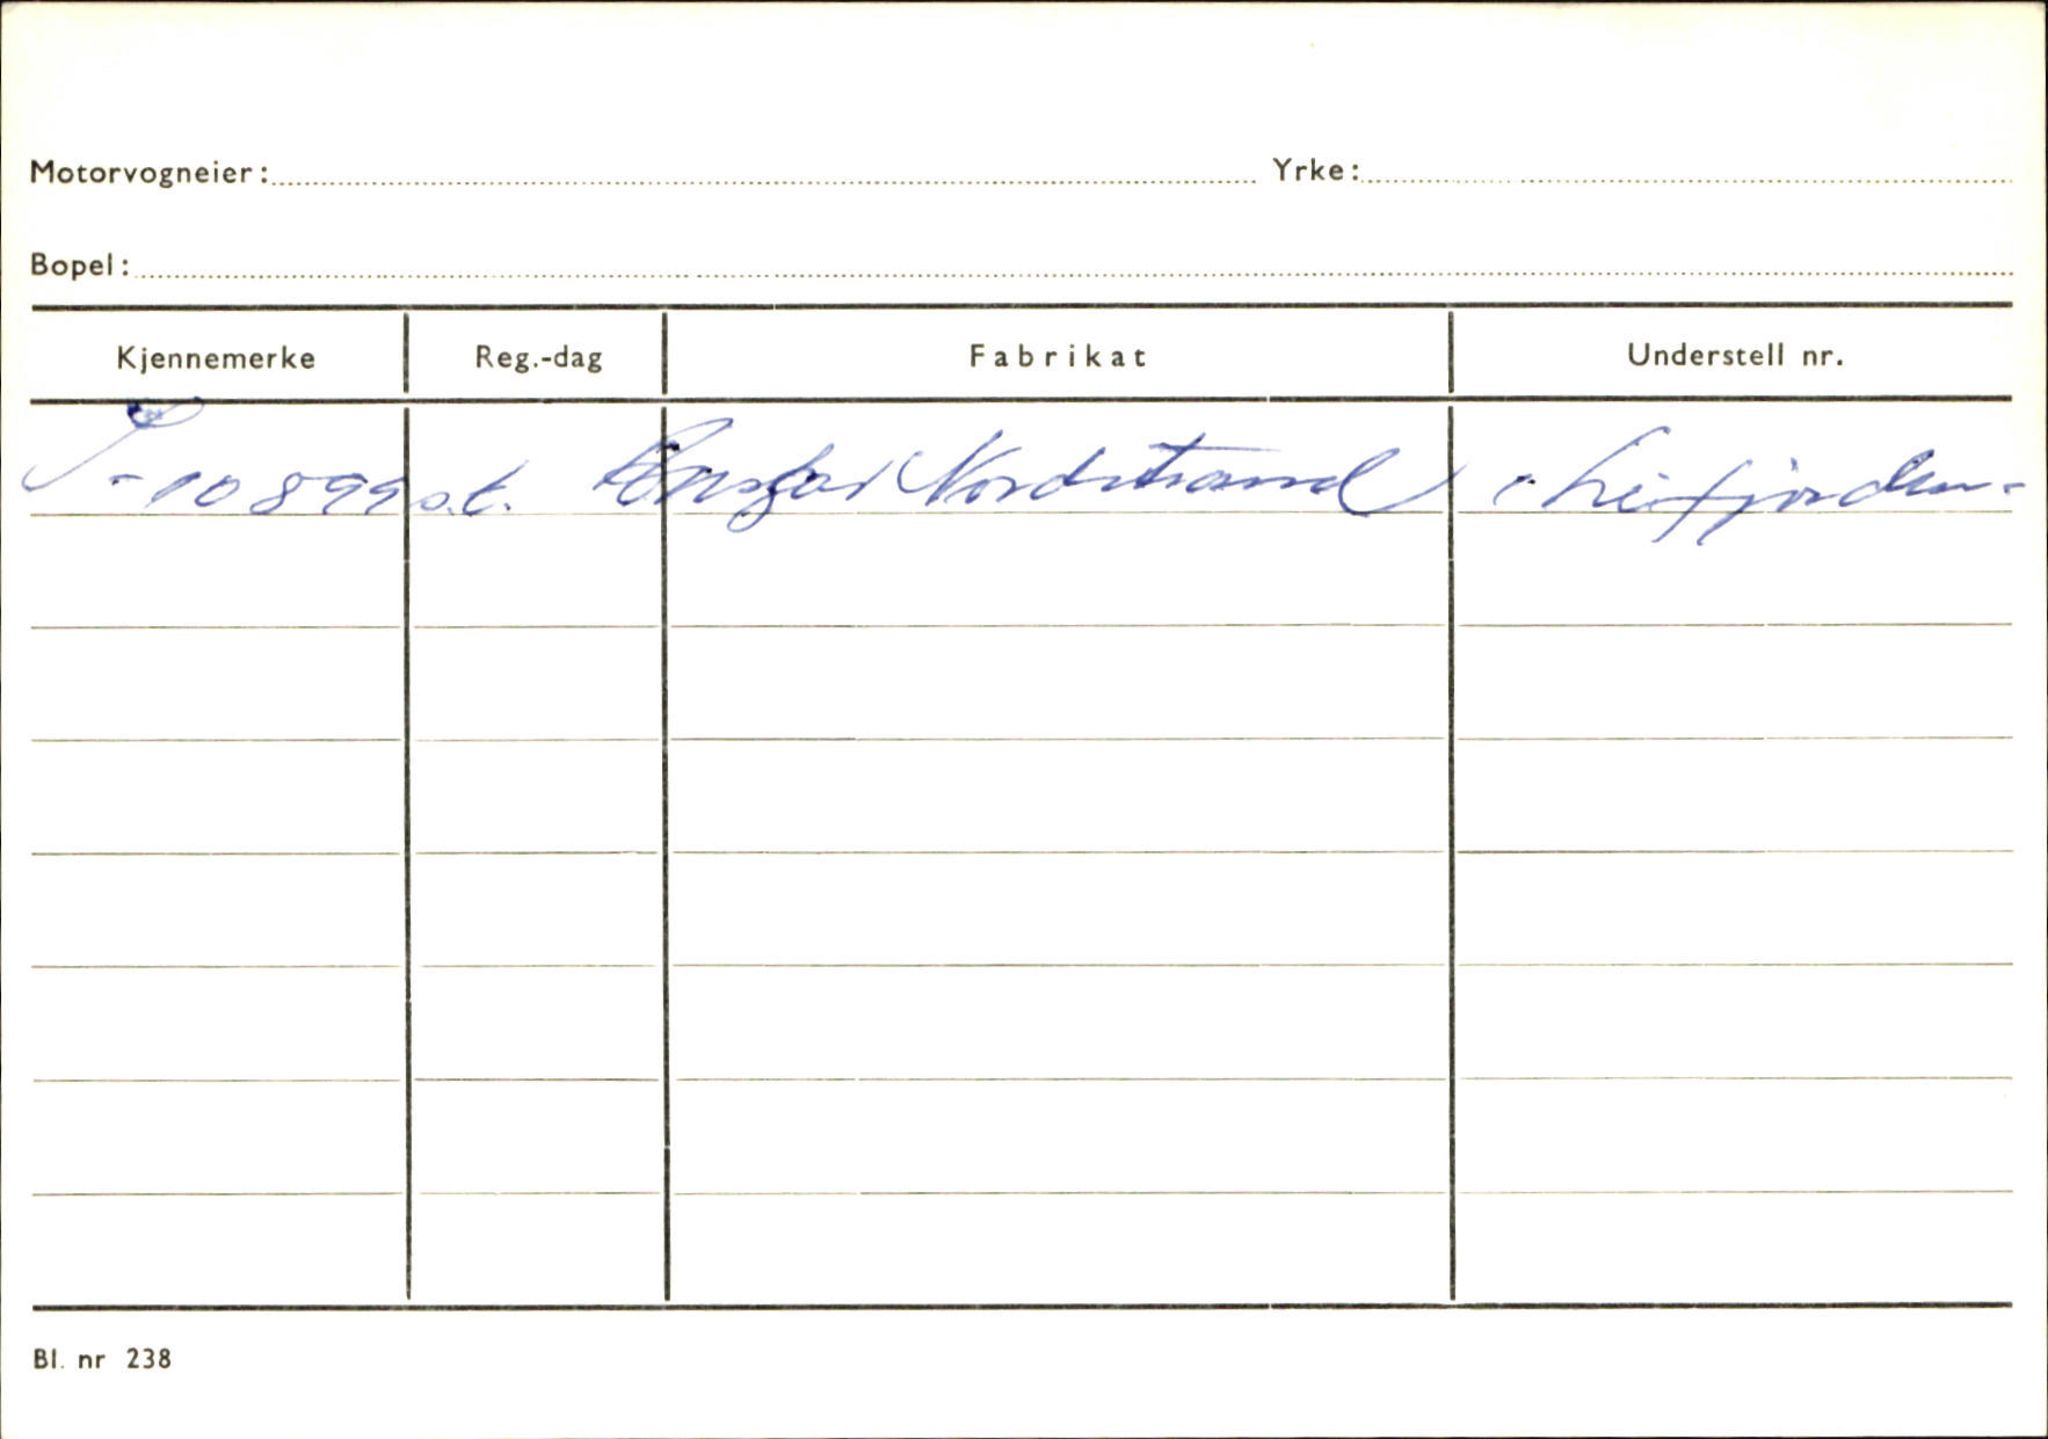 Motorvogneier: Yrke:
Bopel:
Kjennemerke Reg.-dag Fabrikat Understell nr.
S-10899 o.t. Ansgar Nordstrand, Leifjorden.
Bl. nr 238